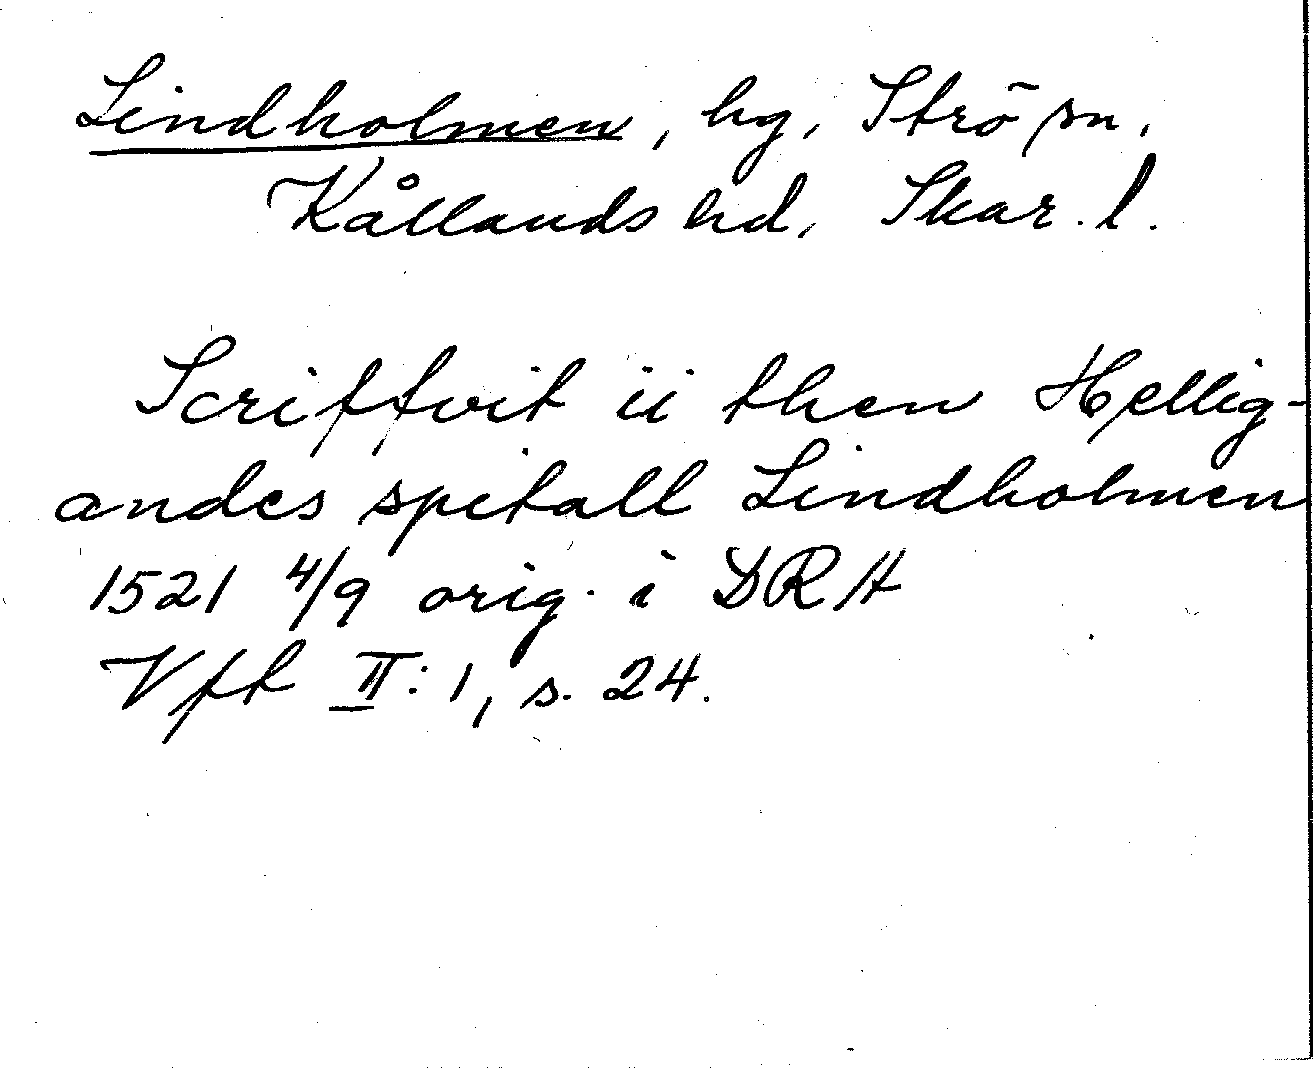 Lindholmen, hg, Strö sn,
Kållands hd, Skar. l.
Scriffvit ii then Hellig-
andes spitall Lindholmen
1521 4/9 orig. i DRA
Vfk II:1, s. 24.